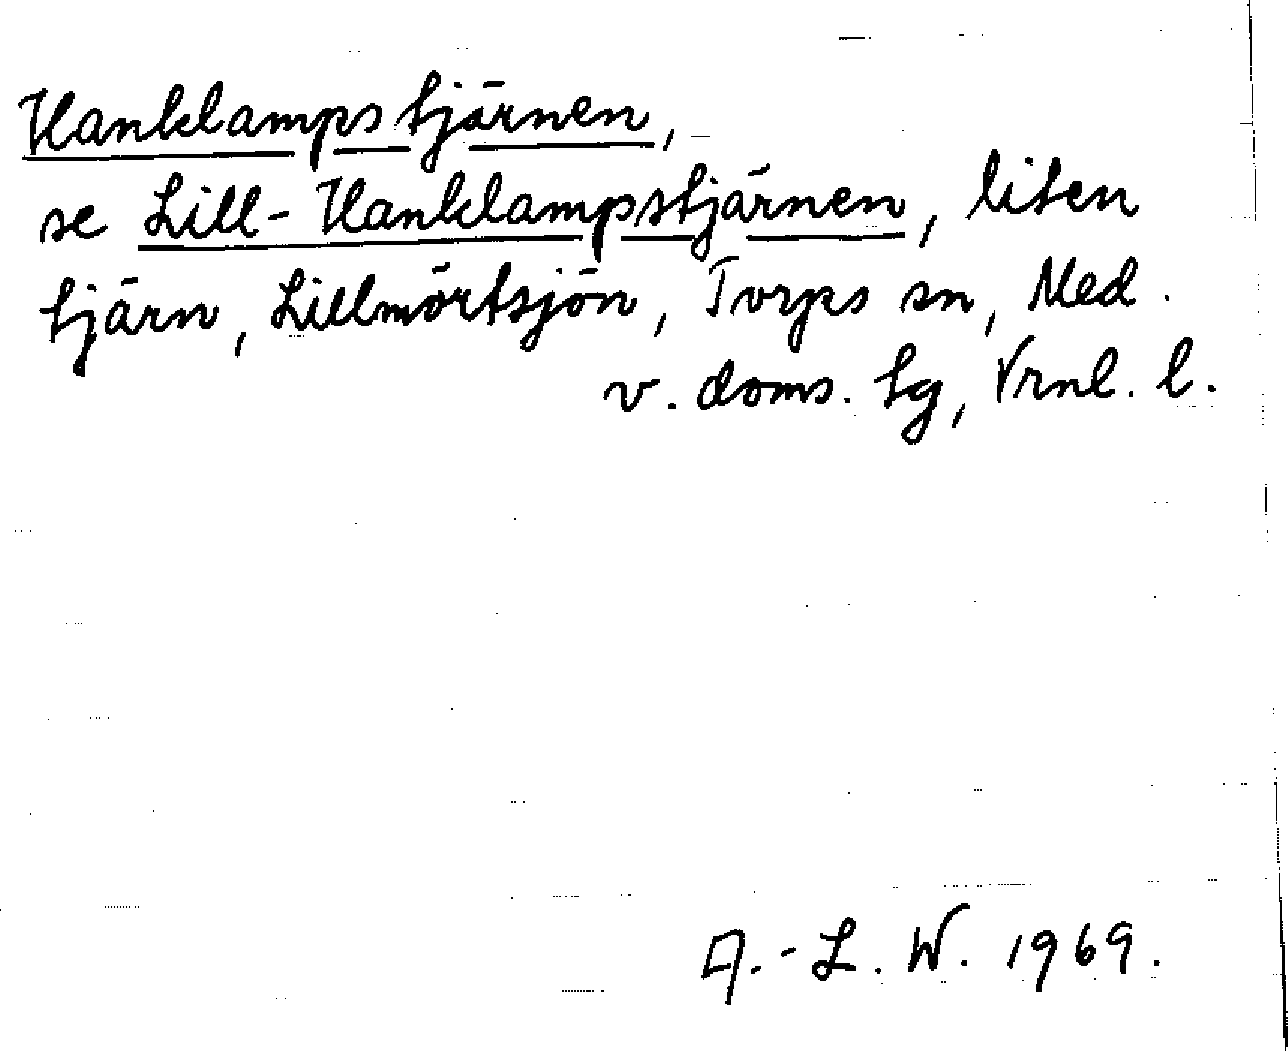 Hanklampstjärnen,
se Lill-Hanklampstjärnen, liten
tjärn, Lillmörtsjön, Torps sn, Med.
v. doms. tg, Vrnl. l.
A.-L. W. 1969.